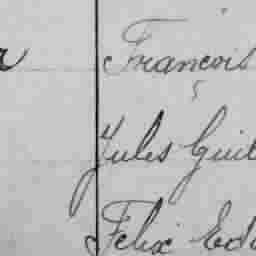 François
Jules Guil
Felix Edo